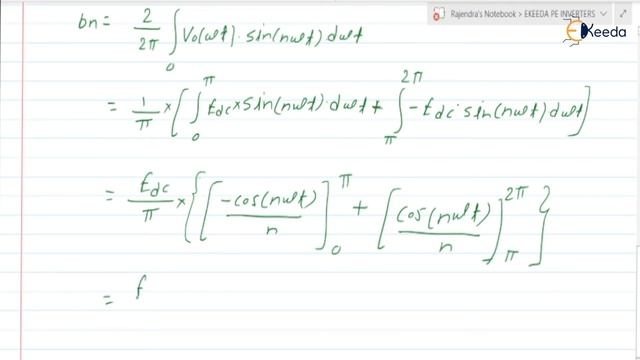 Rajendra's Notebook > EKEEDA PE INVERTERS
Ekeeda
bn = 2/2π ∫₀ Vo(ωt) · sin(nωt) dωt
= 1/π × [ ∫₀^π Edc × sin(nωt) · dωt + ∫_π^2π -Edc · sin(nωt) dωt ]
= Edc/π × { [ -cos(nωt)/n ]₀^π + [ cos(nωt)/n ]_π^2π }
=